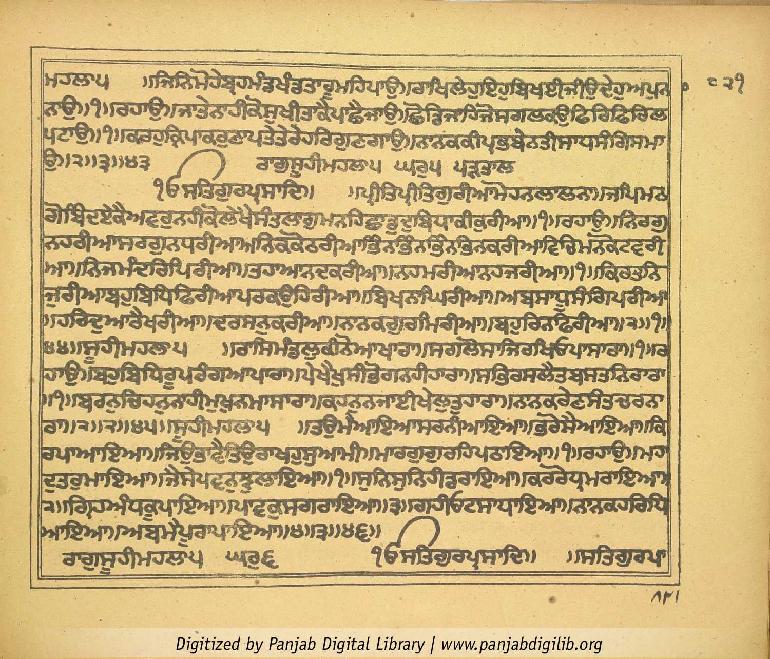 ਮਹਲਾ ੫ ॥ ਜਿਨਿ ਮੋਹੇ ਬ੍ਰਹਮੰਡ ਖੰਡ ਤਾਹੂ ਮਹਿ ਪਾਉ ॥ ਰਾਖਿ ਲੇਹੁ ਇਹੁ ਬਿਖਈ ਜੀਉ ਦੇਹੁ ਅਪੁਨਾ
ਨਾਉ ॥੧॥ ਰਹਾਉ ॥ ਜਾ ਤੇ ਨਾਹੀ ਕੋ ਸੁਖੀ ਤਾ ਕੈ ਪਾਛੈ ਜਾਉ ॥ ਛੋਡਿ ਜਾਹਿ ਜੋ ਸਗਲ ਕਉ ਫਿਰਿ ਫਿਰਿ ਲ
ਪਟਾਉ ॥੧॥ ਕਰਹੁ ਕ੍ਰਿਪਾ ਕਰੁਣਾਪਤੇ ਤੇਰੇ ਹਰਿ ਗੁਣ ਗਾਉ ॥ ਨਾਨਕ ਕੀ ਪ੍ਰਭ ਬੇਨਤੀ ਸਾਧਸੰਗਿ ਸਮਾ
ਉ ॥੨॥੩॥੪੩
ਰਾਗੁ ਸੂਹੀ ਮਹਲਾ ੫ ਘਰੁ ੫ ਪੜਤਾਲ
ੴ ਸਤਿਗੁਰ ਪ੍ਰਸਾਦਿ ॥ ॥ ਪ੍ਰੀਤਿ ਪ੍ਰੀਤਿ ਗੁਰੀਆ ਮੋਹਨ ਲਾਲਨਾ ॥ ਜਪਿ ਮਨ
ਗੋਬਿੰਦ ਏਕੈ ਅਵਰੁ ਨਹੀ ਕੋ ਲੇਖੈ ਸੰਤ ਲਾਗੁ ਮਨਹਿ ਛਾਡੁ ਦੁਬਿਧਾ ਕੀ ਕੁਰੀਆ ॥੧॥ ਰਹਾਉ ॥ ਨਿਰਗੁ
ਨ ਹਰੀਆ ਸਰਗੁਨ ਧਰੀਆ ਅਨਿਕ ਕੋਠਰੀਆ ਭਿੰਨ ਭਿੰਨ ਭਿੰਨ ਭਿਨ ਕਰੀਆ ॥ ਵਿਚਿ ਮਨ ਕੋਟਵਰੀ
ਆ ॥ ਨਿਜ ਮੰਦਰਿ ਪਿਰੀਆ ॥ ਤਹਾ ਆਨਦ ਕਰੀਆ ॥ ਨਹ ਮਰੀਆ ਨਹ ਜਰੀਆ ॥੧॥ ਕਿਰਤਨਿ
ਜੁਰੀਆ ਬਹੁ ਬਿਧਿ ਫਿਰੀਆ ਪਰ ਕਉ ਹਿਰੀਆ ॥ ਬਿਖਨਾ ਘਿਰੀਆ ॥ ਅਬ ਸਾਧੂ ਸੰਗਿ ਪਰੀਆ
॥ ਹਰਿ ਦੁਆਰੈ ਖਰੀਆ ॥ ਦਰਸਨੁ ਕਰੀਆ ॥ ਨਾਨਕ ਗੁਰ ਮਿਰੀਆ ॥ ਬਹੁਰਿ ਨ ਫਿਰੀਆ ॥੨॥੧॥
੪੪॥ ਸੂਹੀ ਮਹਲਾ ੫ ॥ ਰਾਸਿ ਮੰਡਲੁ ਕੀਨੋ ਆਖਾਰਾ ॥ ਸਗਲੋ ਸਾਜਿ ਰਖਿਓ ਪਾਸਾਰਾ ॥੧॥ ਰ
ਹਾਉ ॥ ਬਹੁ ਬਿਧਿ ਰੂਪ ਰੰਗ ਆਪਾਰਾ ॥ ਪੇਖੈ ਖੁਸੀ ਭੋਗ ਨਹੀ ਹਾਰਾ ॥ ਸਭਿ ਰਸ ਲੈਤ ਬਸਤ ਨਿਰਾਰਾ
॥੧॥ ਬਰਨੁ ਚਿਹਨੁ ਨਾਹੀ ਮੁਖੁ ਨ ਮਾਸਾਰਾ ॥ ਕਹਨੁ ਨ ਜਾਈ ਖੇਲੁ ਤੁਹਾਰਾ ॥ ਨਾਨਕ ਰੇਣ ਸੰਤ ਚਰਨਾ
ਰਾ ॥੨॥੨॥੪੫॥ ਸੂਹੀ ਮਹਲਾ ੫ ॥ ਤਉ ਮੈ ਆਇਆ ਸਰਨੀ ਆਇਆ ॥ ਭਰੋਸੈ ਆਇਆ ॥ ਕਿ
ਰਪਾ ਆਇਆ ॥ ਜਿਉ ਭਾਵੈ ਤਿਉ ਰਾਖਹੁ ਸੁਆਮੀ ॥ ਮਾਰਗੁ ਗੁਰਹਿ ਪਠਾਇਆ ॥੧॥ ਰਹਾਉ ॥ ਮਹਾ
ਦੁਤਰੁ ਮਾਇਆ ॥ ਜੈਸੇ ਪਵਨੁ ਝੁਲਾਇਆ ॥੧॥ ਸੁਨਿ ਸੁਨਿ ਹੀ ਡਰਾਇਆ ॥ ਕਰਰੋ ਧ੍ਰਮਰਾਇਆ ॥
੨॥ ਗ੍ਰਿਹ ਅੰਧ ਕੂਪਾਇਆ ॥ ਪਾਵਕੁ ਸਗਰਾਇਆ ॥੩॥ ਗਹੀ ਓਟ ਸਾਧਾਇਆ ॥ ਨਾਨਕ ਹਰਿ ਧਿ
ਆਇਆ ॥ ਅਬ ਮੈ ਪੂਰਾ ਪਾਇਆ ॥੪॥੩॥੪੬॥
ਰਾਗੁ ਸੂਹੀ ਮਹਲਾ ੫ ਘਰੁ ੬ ੴ ਸਤਿਗੁਰ ਪ੍ਰਸਾਦਿ ॥ ॥ ਸਤਿਗੁਰ ਪਾ
Digitized by Panjab Digital Library | www.panjabdigilib.org